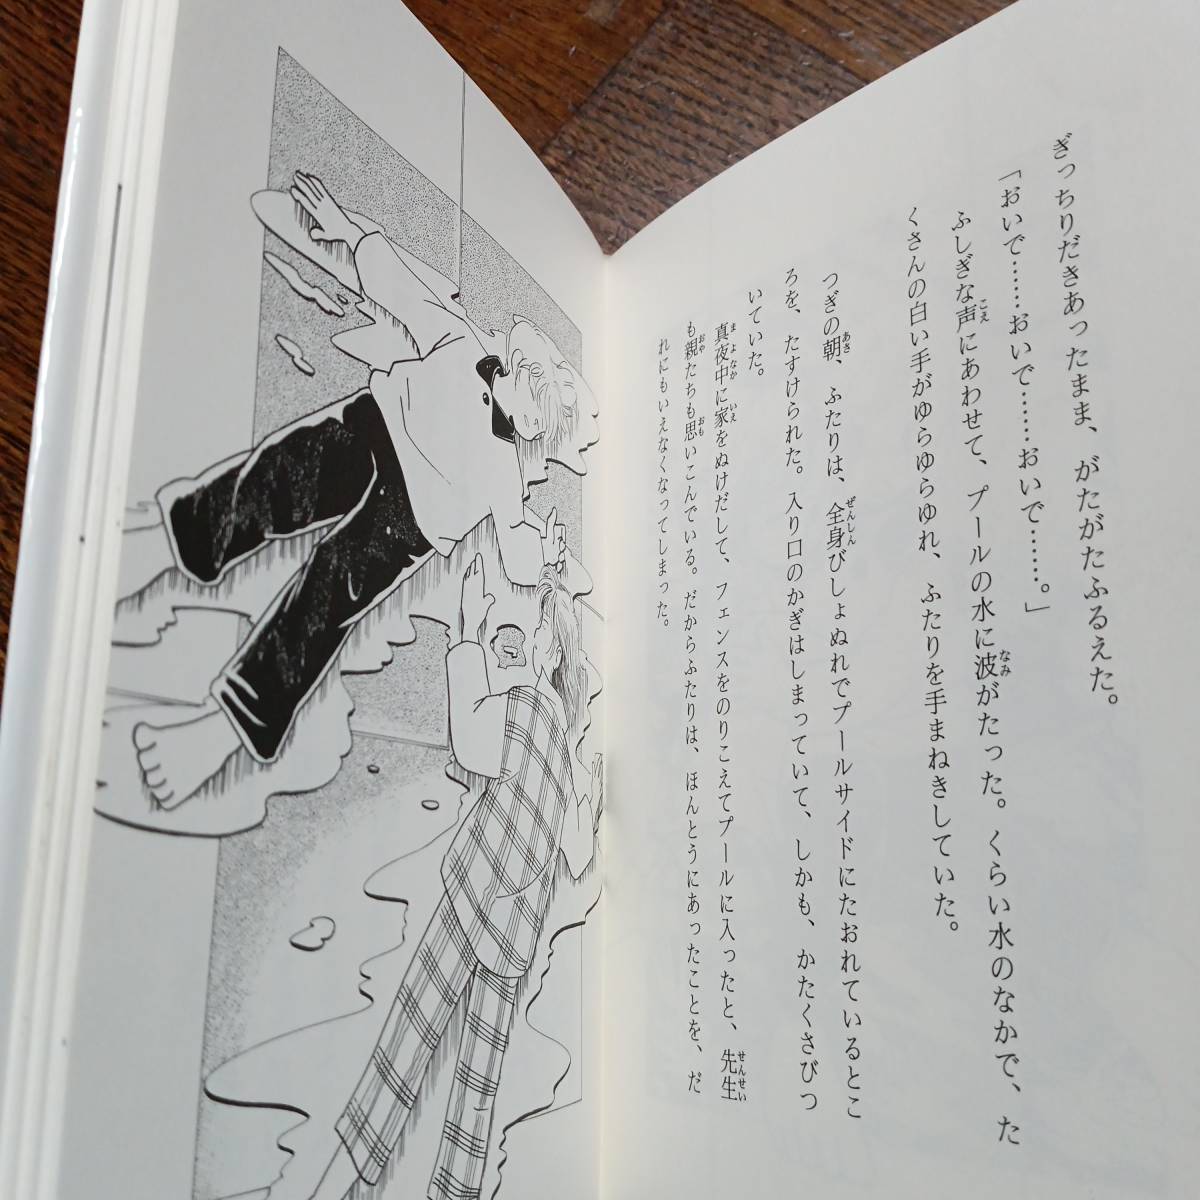 ぎっちりだきあったまま、がたがたふるえた。
「おいで……おいで……おいで……。」
ふしぎな声にあわせて、プールの水に波がたった。くらい水のなかで、た
くさんの白い手がゆらゆらゆれ、ふたりを手まねきしていた。
つぎの朝、ふたりは、全身びしょぬれでプールサイドにたおれているとこ
ろを、たすけられた。入り口のかぎはしまっていて、しかも、かたくさびつ
いていた。
真夜中に家をぬけだして、フェンスをのりこえてプールに入ったと、先生
も親たちも思いこんでいる。だからふたりは、ほんとうにあったことを、だ
れにもいえなくなってしまった。